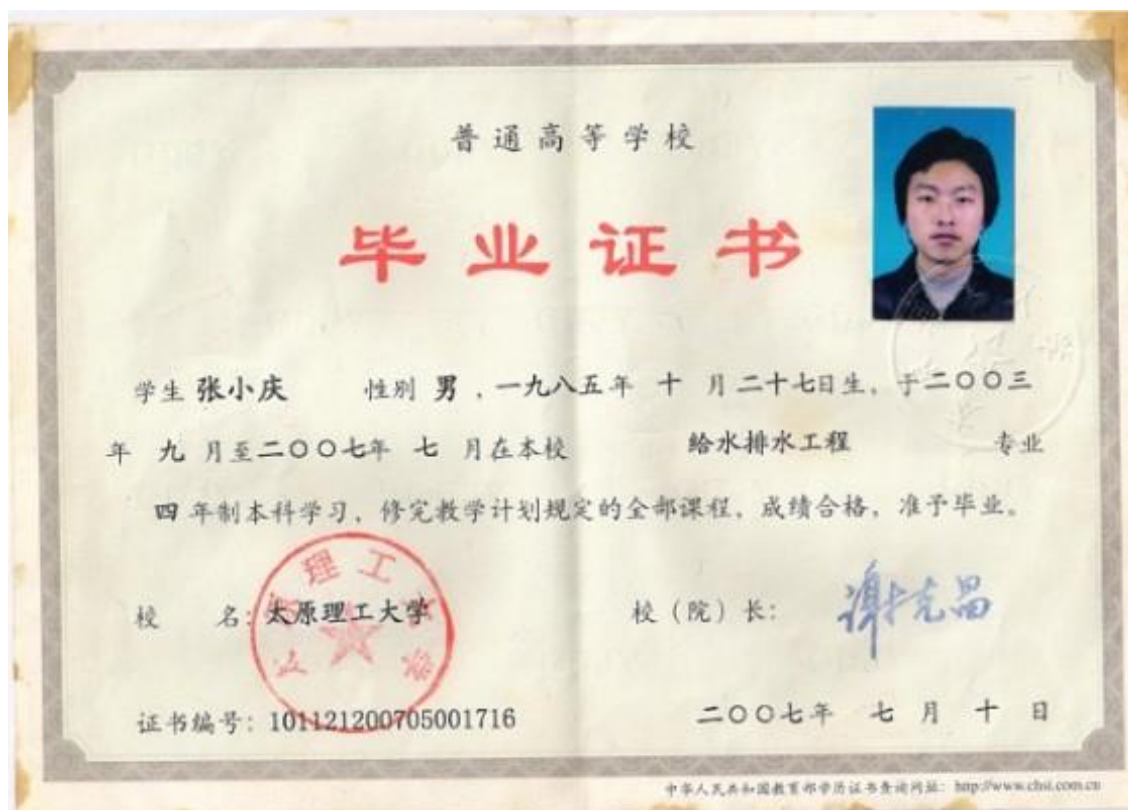 普通高等学校
毕业证书
学生 张小庆 性别 男 ，一九八五年 十 月 二十七日生，于二〇〇三
年 九 月至二〇〇七年 七 月在本校 给水排水工程 专业
四 年制本科学习，修完教学计划规定的全部课程，成绩合格，准予毕业。
校 名：太原理工大学 校（院）长： 谢克昌
证书编号：101121200705001716 二〇〇七年 七 月 十 日
中华人民共和国教育部学历证书查询网址：http://www.chsi.com.cn